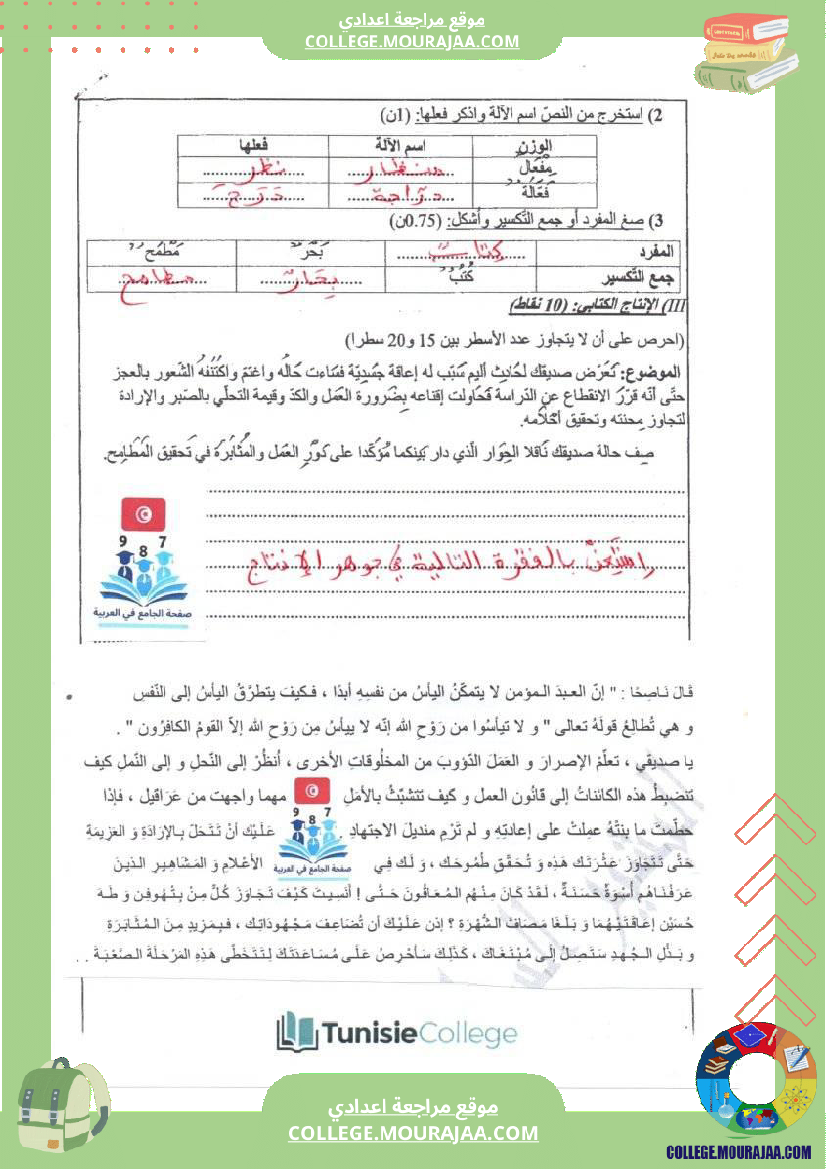 موقع مراجعة اعدادي
COLLEGE.MOURAJAA.COM
2) استخرج من النصّ اسم الآلة واذكر فعلها: (1ن)
الوزن اسم الآلة فعلها
مِفْعَالٌ منظار نظر
فَعَّالَةٌ درّاجة دَرَجَ
3) صغ المفرد أو جمع التّكسير وأشكل: (0.75ن)
المفرد كِتَابٌ بَحْرٌ مَطْمَحٌ
جمع التّكسير كُتُبٌ بِحَارٌ مطامح
III) الإنتاج الكتابي: (10 نقاط)
(احرص على أن لا يتجاوز عدد الأسطر بين 15 و20 سطرا)
الموضوع: تَعَرَّض صديقك لحَادِثٍ أليم سَبَّب له إعاقة جَسديّة فسَاءت حَالُه واغتمّ واكْتَنَفَهُ الشّعور بالعجز
حتّى أنّه قرّرَ الانقطاع عن الدّراسة فحَاولت إقناعه بِضرورة العَمل والكدّ وقيمة التحلّي بالصّبر والإرادة
لتجاوز مِحنته وتحقيق أَحْلَامه.
صِف حالة صديقك نَاقلا الحِوار الّذي دار بَينكما مُؤكّدا على دَوْرِ العَمل والمُثَابَرَة في تَحقيق المَطَامِح.
إستَعِنْ بالفقرة التالية في جوهر الإنتاج
9 8 7
صفحة الجامع في العربية
قَالَ نَاصِحًا : " إنّ العـبدَ الـمؤمن لا يَتمكّنُ اليأسُ من نفسِهِ أبدًا ، فـكيفَ يتطرَّقُ اليأسُ إلى النّفسِ
و هي تُطالِعُ قولَهُ تعالى " و لا تيأسُوا من رَوْحِ الله إنّه لا ييأسُ مِن رَوْحِ الله إلاّ القومُ الكافِرُون " .
يا صديقي ، تعلّمْ الإصرارَ و العَمَلَ الدّؤوبَ من المخلُوقاتِ الأخرى ، أنظُرْ إلى النّحلِ و إلى النّملِ كيف
تنضبِطُ هذه الكائناتُ إلى قانُون العمل و كيف تتشبّثُ بالأمَلِ مهما واجهت من عَرَاقيل ، فَإذَا
حطّمتَ ما بنتْهُ عمِلتْ على إعادتِهِ و لم تَرْمِ منديلَ الاجتهادِ . عَلَـيْكَ أنْ تَتَحَلّ بِـالإرَادَةِ وَ العَزِيمَةِ
9 8 7
صفحة الجامع في العربية
حَتَّى تَتَجَاوَزَ عَثْرَتَكَ هَذِه وَ تُحَقّقَ طُمُوحَكَ ، وَ لَكَ فِي الأعْلاَمِ وَ المَشَاهِـيرِ الـذيـنَ
عَرَفْنَاهُم أسْوَةٌ حَسَنَةٌ ، لَقَدْ كَانَ مِنْهُم المُعَاقُونَ حَتَّـى ! أنَسِيتَ كَيْفَ تَجَاوَزَ كُلٌّ مِنْ بِتْـهُوفِن وَ طَـهَ
حُسَيْن إعَاقَتَيْـهُمَا وَ بَلَغَا مَصَافَ الشُّهْرَةِ ؟ إذن عَلَـيْكَ أن تُضَاعِفَ مَـجْـهُودَاتِكَ ، فَـبِـمَزِيدٍ مِنَ الـمُثَابَرَةِ
و بَـذْلِ الـجُهدِ سَتَصِلُ إلَى مُبْتَغَاكَ ، كَذَلِكَ سَأحْرِصُ عَلَـى مُسَاعَدَتِكَ لِتَتَخَطَّى هَذِهِ المَرْحَلَةَ الـصَّعْبَةَ . .
TunisieCollege
موقع مراجعة اعدادي
COLLEGE.MOURAJAA.COM
COLLEGE.MOURAJAA.COM